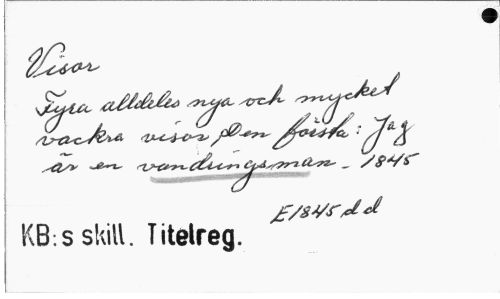 Visor
Fyra alldeles nya och mycket
vackra visor, Den första: Jag
är en vandringsman. - 1845
E1845 d d
KB:s skill. Titelreg.